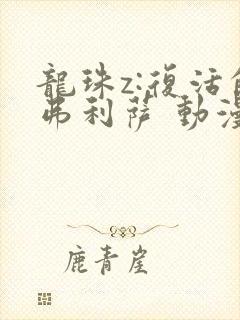 龍珠z:復活的
弗利薩 動漫
鹿青崖